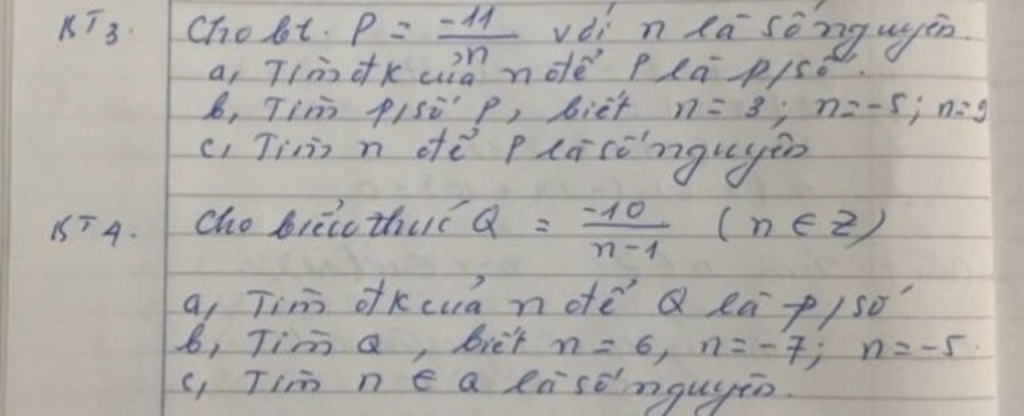 BT3. Cho bt. P = -11/n với n là số nguyên.
a, Tìm đk của n để P là p/số.
b, Tìm p/số P, biết n = 3; n = -5; n = 9
c, Tìm n để P là số nguyên
BT4. Cho biểu thức Q = -10/n-1 (n ∈ Z)
a, Tìm đk của n để Q là p/số
b, Tìm Q, biết n = 6, n = -7; n = -5.
c, Tìm n ∈ Q là số nguyên.